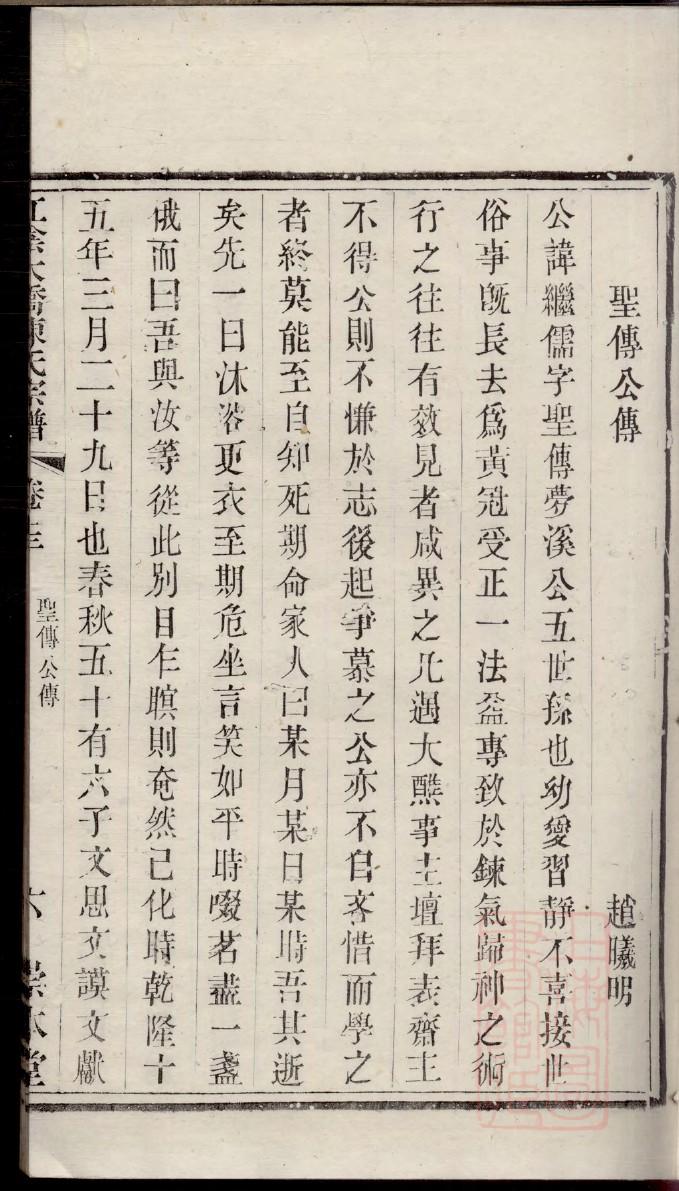 聖傳公傳
趙曦明
公諱繼儒字聖傳夢溪公五世孫也幼愛習靜不喜接世
俗事旣長去爲黃冠受正一法益專致於鍊氣歸神之術
行之往往有效見者咸異之凡遇大醮事主壇拜表齋主
不得公則不慊於志後起爭慕之公亦不自吝惜而學之
者終莫能至自知死期命家人曰某月某日某時吾其逝
矣先一日沐浴更衣至期危坐言笑如平時啜茗盡一盞
俄而曰吾與汝等從此別目乍瞑則奄然已化時乾隆十
五年三月二十九日也春秋五十有六子文思文謨文獻
江陰大橋陳氏宗譜
卷三
聖傳公傳
六
崇本堂